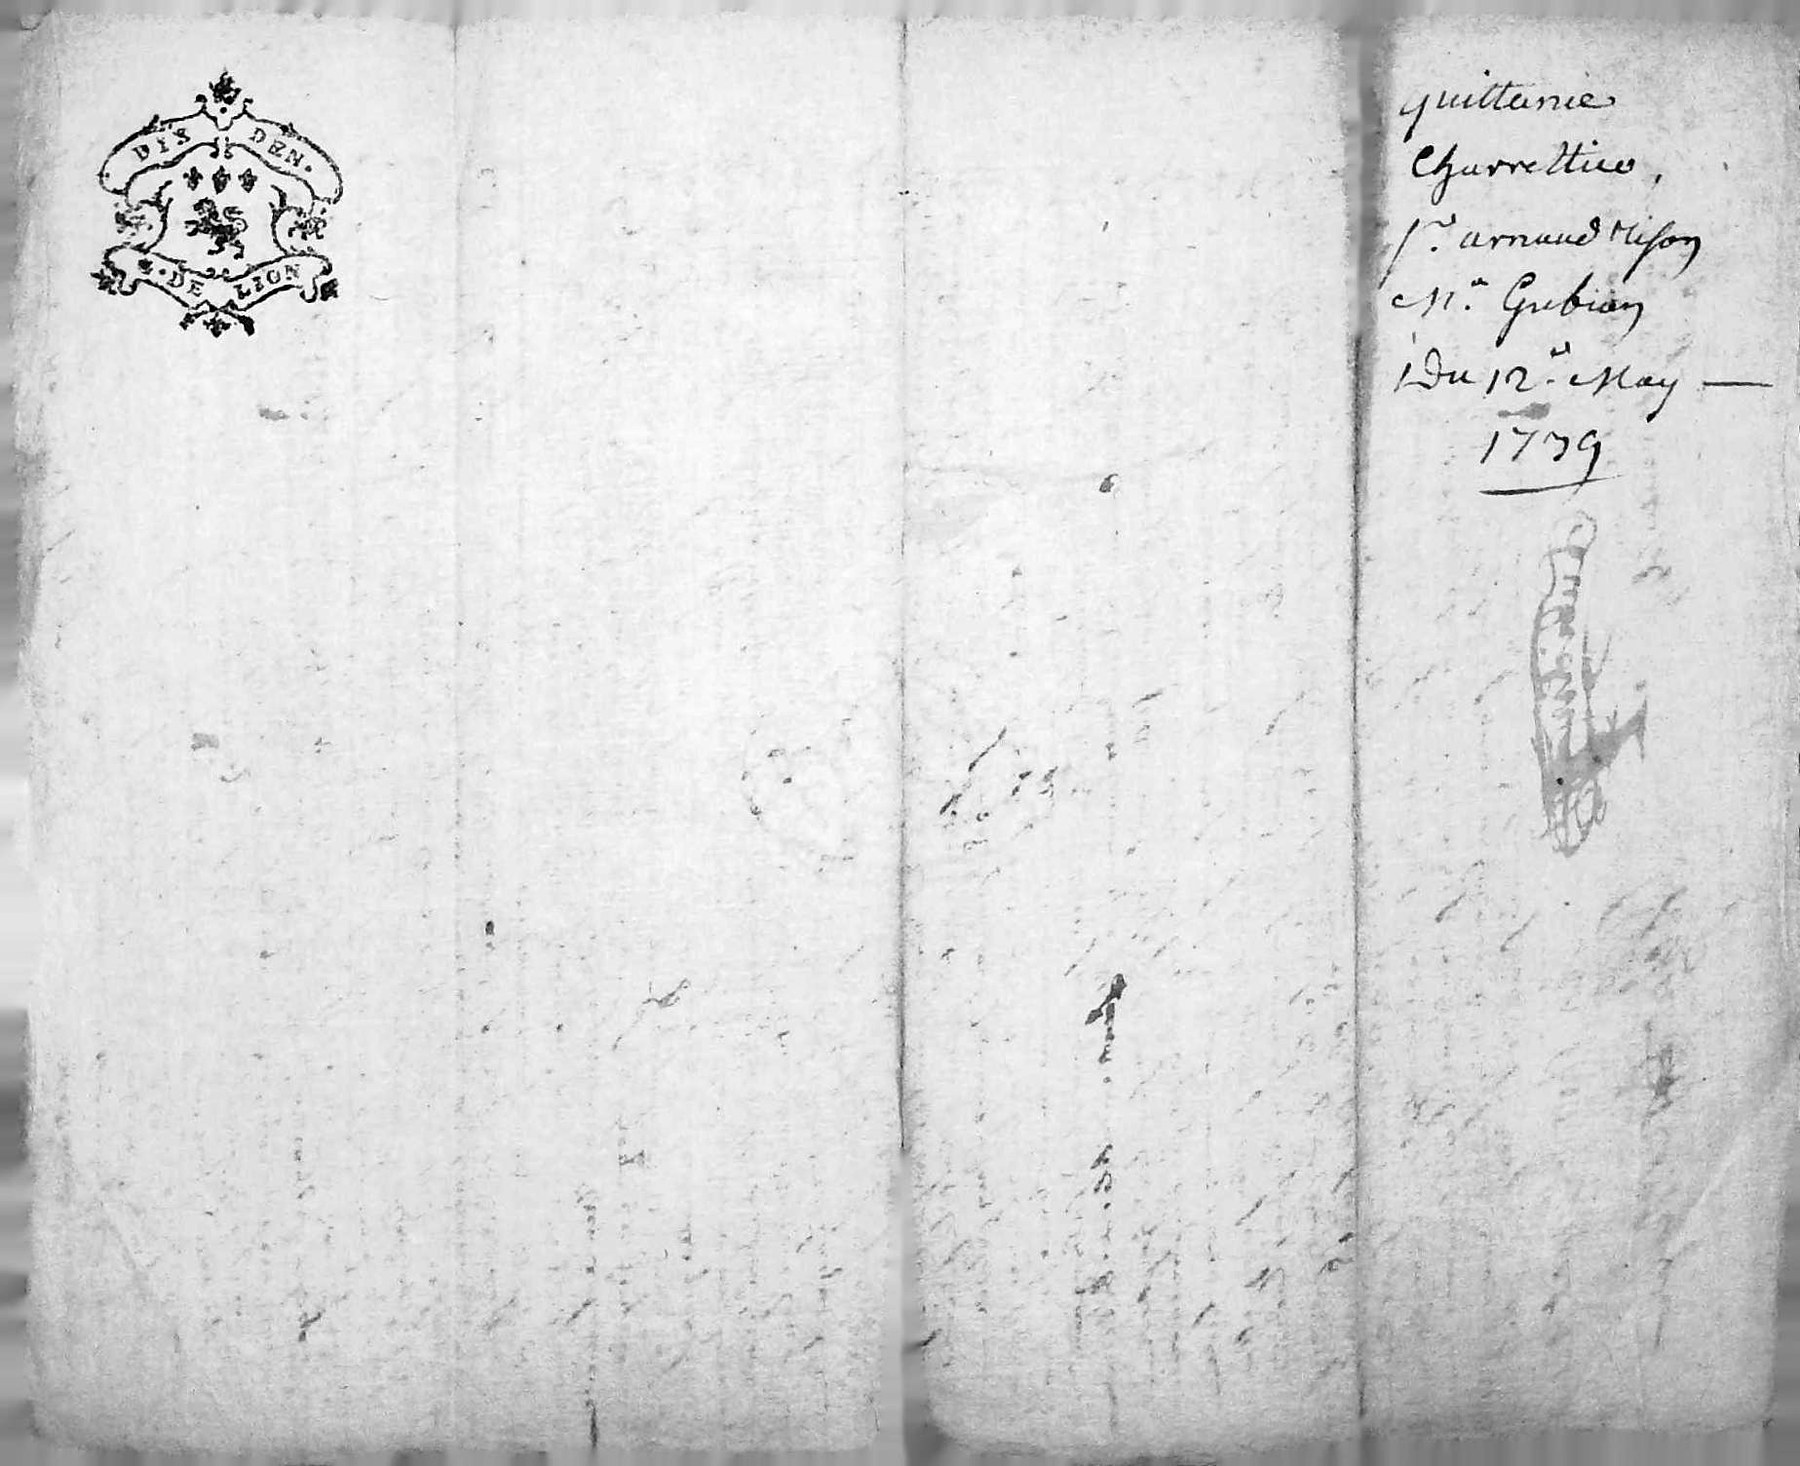 DIX DEN.
G. DE LION
quittance
Charrettier,
Sr. arnaud
Me. Gubian
Du 12e. May —
1739